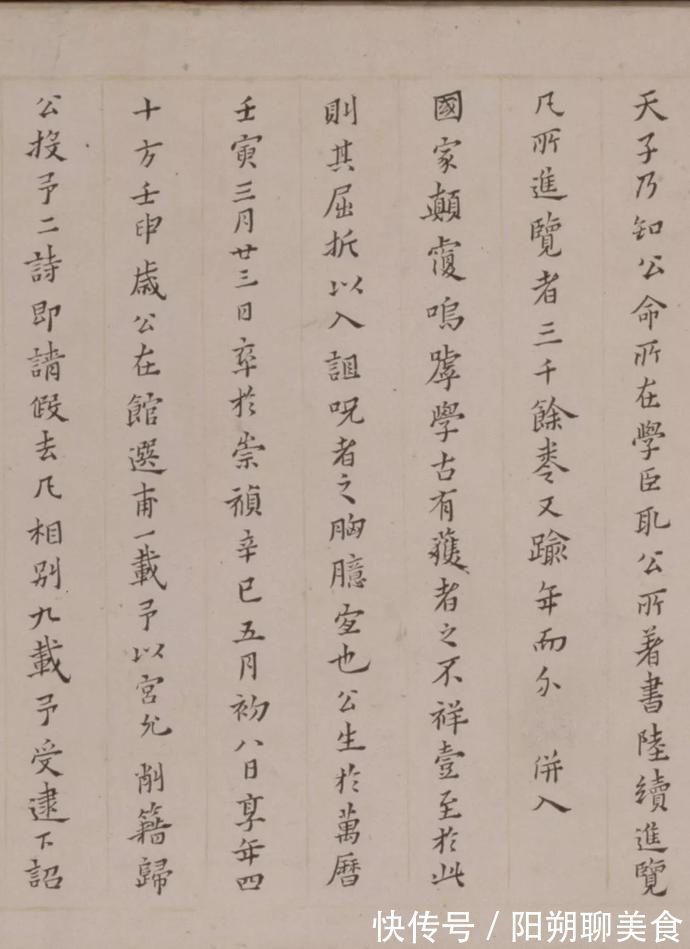 天子乃知公命所在學臣耴公所著書陸續進覽
凡所進覽者三千餘卷又踰年而 併入
國家顛覆嗚嘑學古有獲者之不祥壹至於此
則其屈折以入詛呪者之胸臆宜也公生於萬曆
壬寅三月廿三日卒於崇禎辛巳五月初八日享年四
十方壬申歲公在館選甫一載予以宮允削籍歸
公投予二詩即請假去凡相別九載予受逮下詔
快传号 / 阳朔聊美食